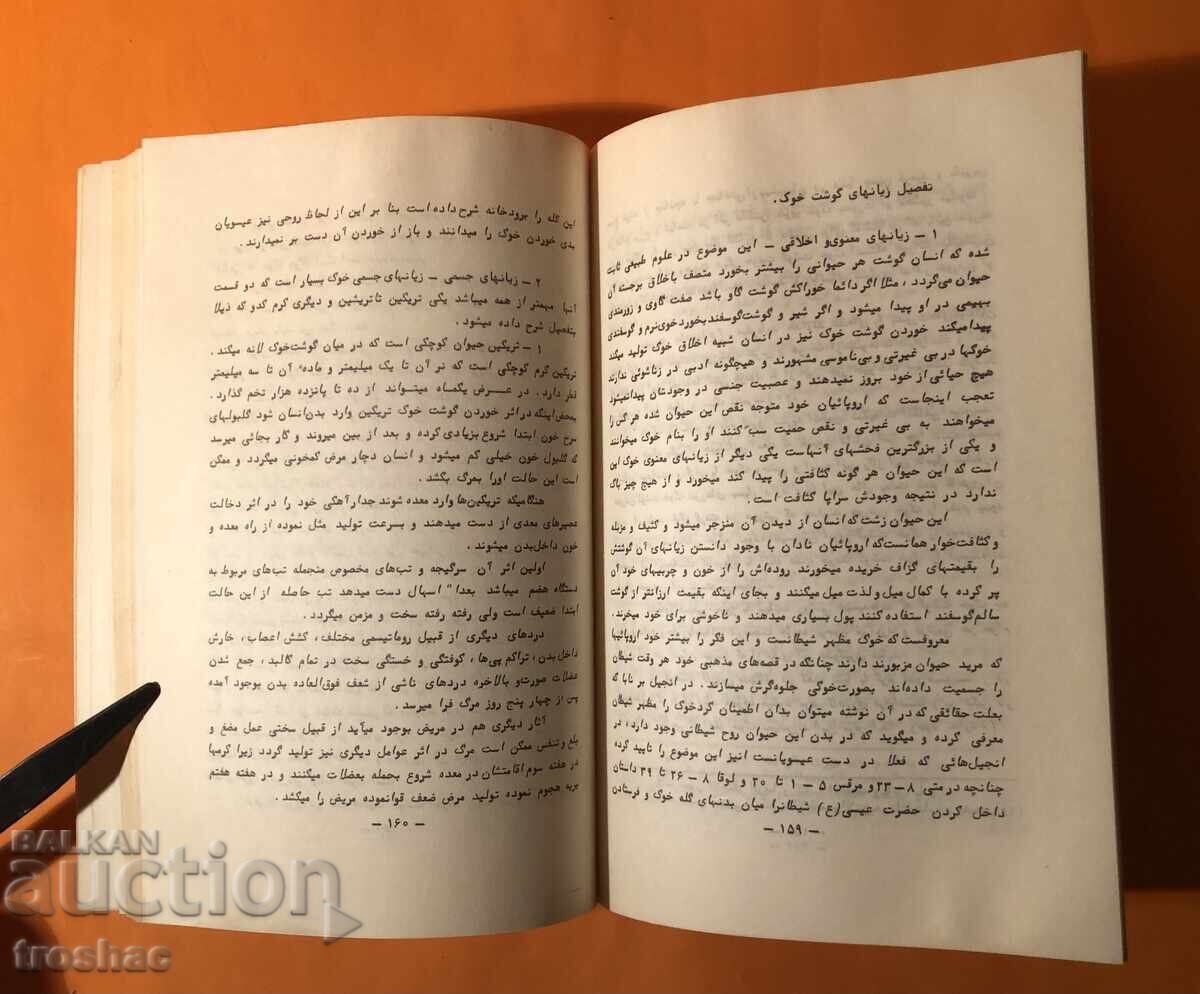 تفصیل زیانهای گوشت خوک .
۱ – زیانهای معنوی و اخلاقی – این موضوع در علوم طبیعی ثابت
شده که انسان گوشت هر حیوانی را بیشتر بخورد متصف باخلاق برجسته آن
حیوان می‌گردد ، مثلا اگر دائما خوراکش گوشت گاو باشد صفت گاوی و زورمندی
بهیمی در او پیدا میشود و اگر شیر و گوشت‌گوسفند بخورد خوی‌نرم و گوسفندی
پیدا میکند خوردن گوشت خوک نیز در انسان شبیه اخلاق خوک تولید میکند
خوکها در بی غیرتی و بی‌ناموسی مشهورند و هیچگونه ادبی در زناشوئی ندارند
هیچ حیائی از خود بروز نمیدهند و عصبیت جنسی در وجودشان پیدا نمیشود
تعجب اینجاست که اروپائیان خود متوجه نقص این حیوان شده هر کس را
میخواهند به بی غیرتی و نقص حمیت سب کنند او را بنام خوک میخوانند
و یکی از بزرگترین فحشهای آنهاست یکی دیگر از زیانهای معنوی خوک این
است که این حیوان هر گونه کثافتی را پیدا کند میخورد و از هیچ چیز باک
ندارد در نتیجه وجودش سراپا کثافت است .
این حیوان زشت که انسان از دیدن آن منزجر میشود و کثیف و مزبله
و کثافت‌خوار همانست‌که اروپائیان نادان با وجود دانستن زیانهای آن گوشتش
را بقیمتهای گزاف خریده میخورند روده‌اش را از خون و چربیهای خود آن
پر کرده با کمال میل و لذت میل میکنند و بجای اینکه بقیمت ارزانتر از گوشت
سالم گوسفند استفاده کنند پول بسیاری میدهند و ناخوشی برای خود میخرند .
معروفست که خوک مظهر شیطانست و این فکر را بیشتر خود اروپائیها
که مرید حیوان مزبورند دارند چنانکه در قصه‌های مذهبی خود هر وقت شیطان
را جسمیت داده‌اند بصورت‌خوکی جلوه‌گرش میسازند . در انجیل بر نابا که
بعلت حقائقی که در آن نوشته میتوان بدان اطمینان کرد خوک را مظهر شیطان
معرفی کرده و میگوید که در بدن این حیوان روح شیطانی وجود دارد ، در
انجیل‌هائی که فعلا در دست عیسویانست انیز این موضوع را تایید کرده
چنانچه در متی ۸ – ۲۳ و مرقس ۵ – ۱ تا ۲۰ و لوقا ۸ – ۲۶ تا ۳۹ داستان
داخل کردن حضرت عیسی (ع) شیطانرا میان بدنهای گله خوک و فرستادن
– ۱۵۹ –
این گله را برودخانه شرح داده است بنا بر این از لحاظ روحی نیز عیسویان
بدی خوردن خوک را میدانند و باز از خوردن آن دست بر نمیدارند .
۲ – زیانهای جسمی – زیانهای جسمی خوک بسیار است که دو قسمت
آنها مهمتر از همه میباشد یکی تریکین تاتریشین و دیگری کرم کدو که ذیلا
بتفصیل شرح داده میشود .
۱ – تریکین حیوان کوچکی است که در میان گوشت‌خوک لانه میکند .
تریکین کرم کوچکی است که نر آن تا یک میلیمتر و ماده‌ٔ آن تا سه میلیمتر
قطر دارد . در عرض یکماه میتواند از ده تا پانزده هزار تخم گذارد .
بمحض‌اینکه در اثر خوردن گوشت خوک تریکین وارد بدن‌انسان شود گلبولهای
سرخ خون ابتدا شروع بزیادی کرده و بعد از بین میروند و کار بجائی میرسد
که گلبول خون خیلی کم میشود و انسان دچار مرض کمخونی میگردد و ممکن
است این حالت اورا بمرگ بکشد .
هنگامیکه تریکین‌ها وارد معده شوند جدار آهکی خود را در اثر دخالت
عصیرهای معدی از دست میدهند و بسرعت تولید مثل نموده از راه معده و
خون داخل‌بدن میشوند .
اولین اثر آن سرگیجه و تب‌های مخصوص منجمله تب‌های مربوط به
دستگاه هضم میباشد بعدا" اسهال دست میدهد تب حاصله از این حالت
ابتدا ضعیف است ولی رفته رفته سخت و مزمن میگردد .
دردهای دیگری از قبیل روماتیسمی مختلف ، کشش اعصاب ، خارش
داخل بدن ، تراکم پی‌ها ، کوفتگی و خستگی سخت در تمام کالبد ، جمع شدن
عضلات صورت‌و بالاخره دردهای ناشی از ضعف فوق‌العاده بدن بوجود آمده
پس از چهار پنج روز مرگ فرا میرسد .
آثار دیگری هم در مریض بوجود میآید از قبیل سختی عمل مضغ و
بلع و تنفس ممکن است مرگ در اثر عوامل دیگری نیز تولید گردد زیرا کرمها
در هفته سوم اقامتشان در معده شروع بحمله بعضلات میکنند و در هفته هفتم
بریه هجوم نموده تولید مرض ضعف قوا نموده مریض را میکشد .
– ۱۶۰ –
BALKAN
auction
troshac